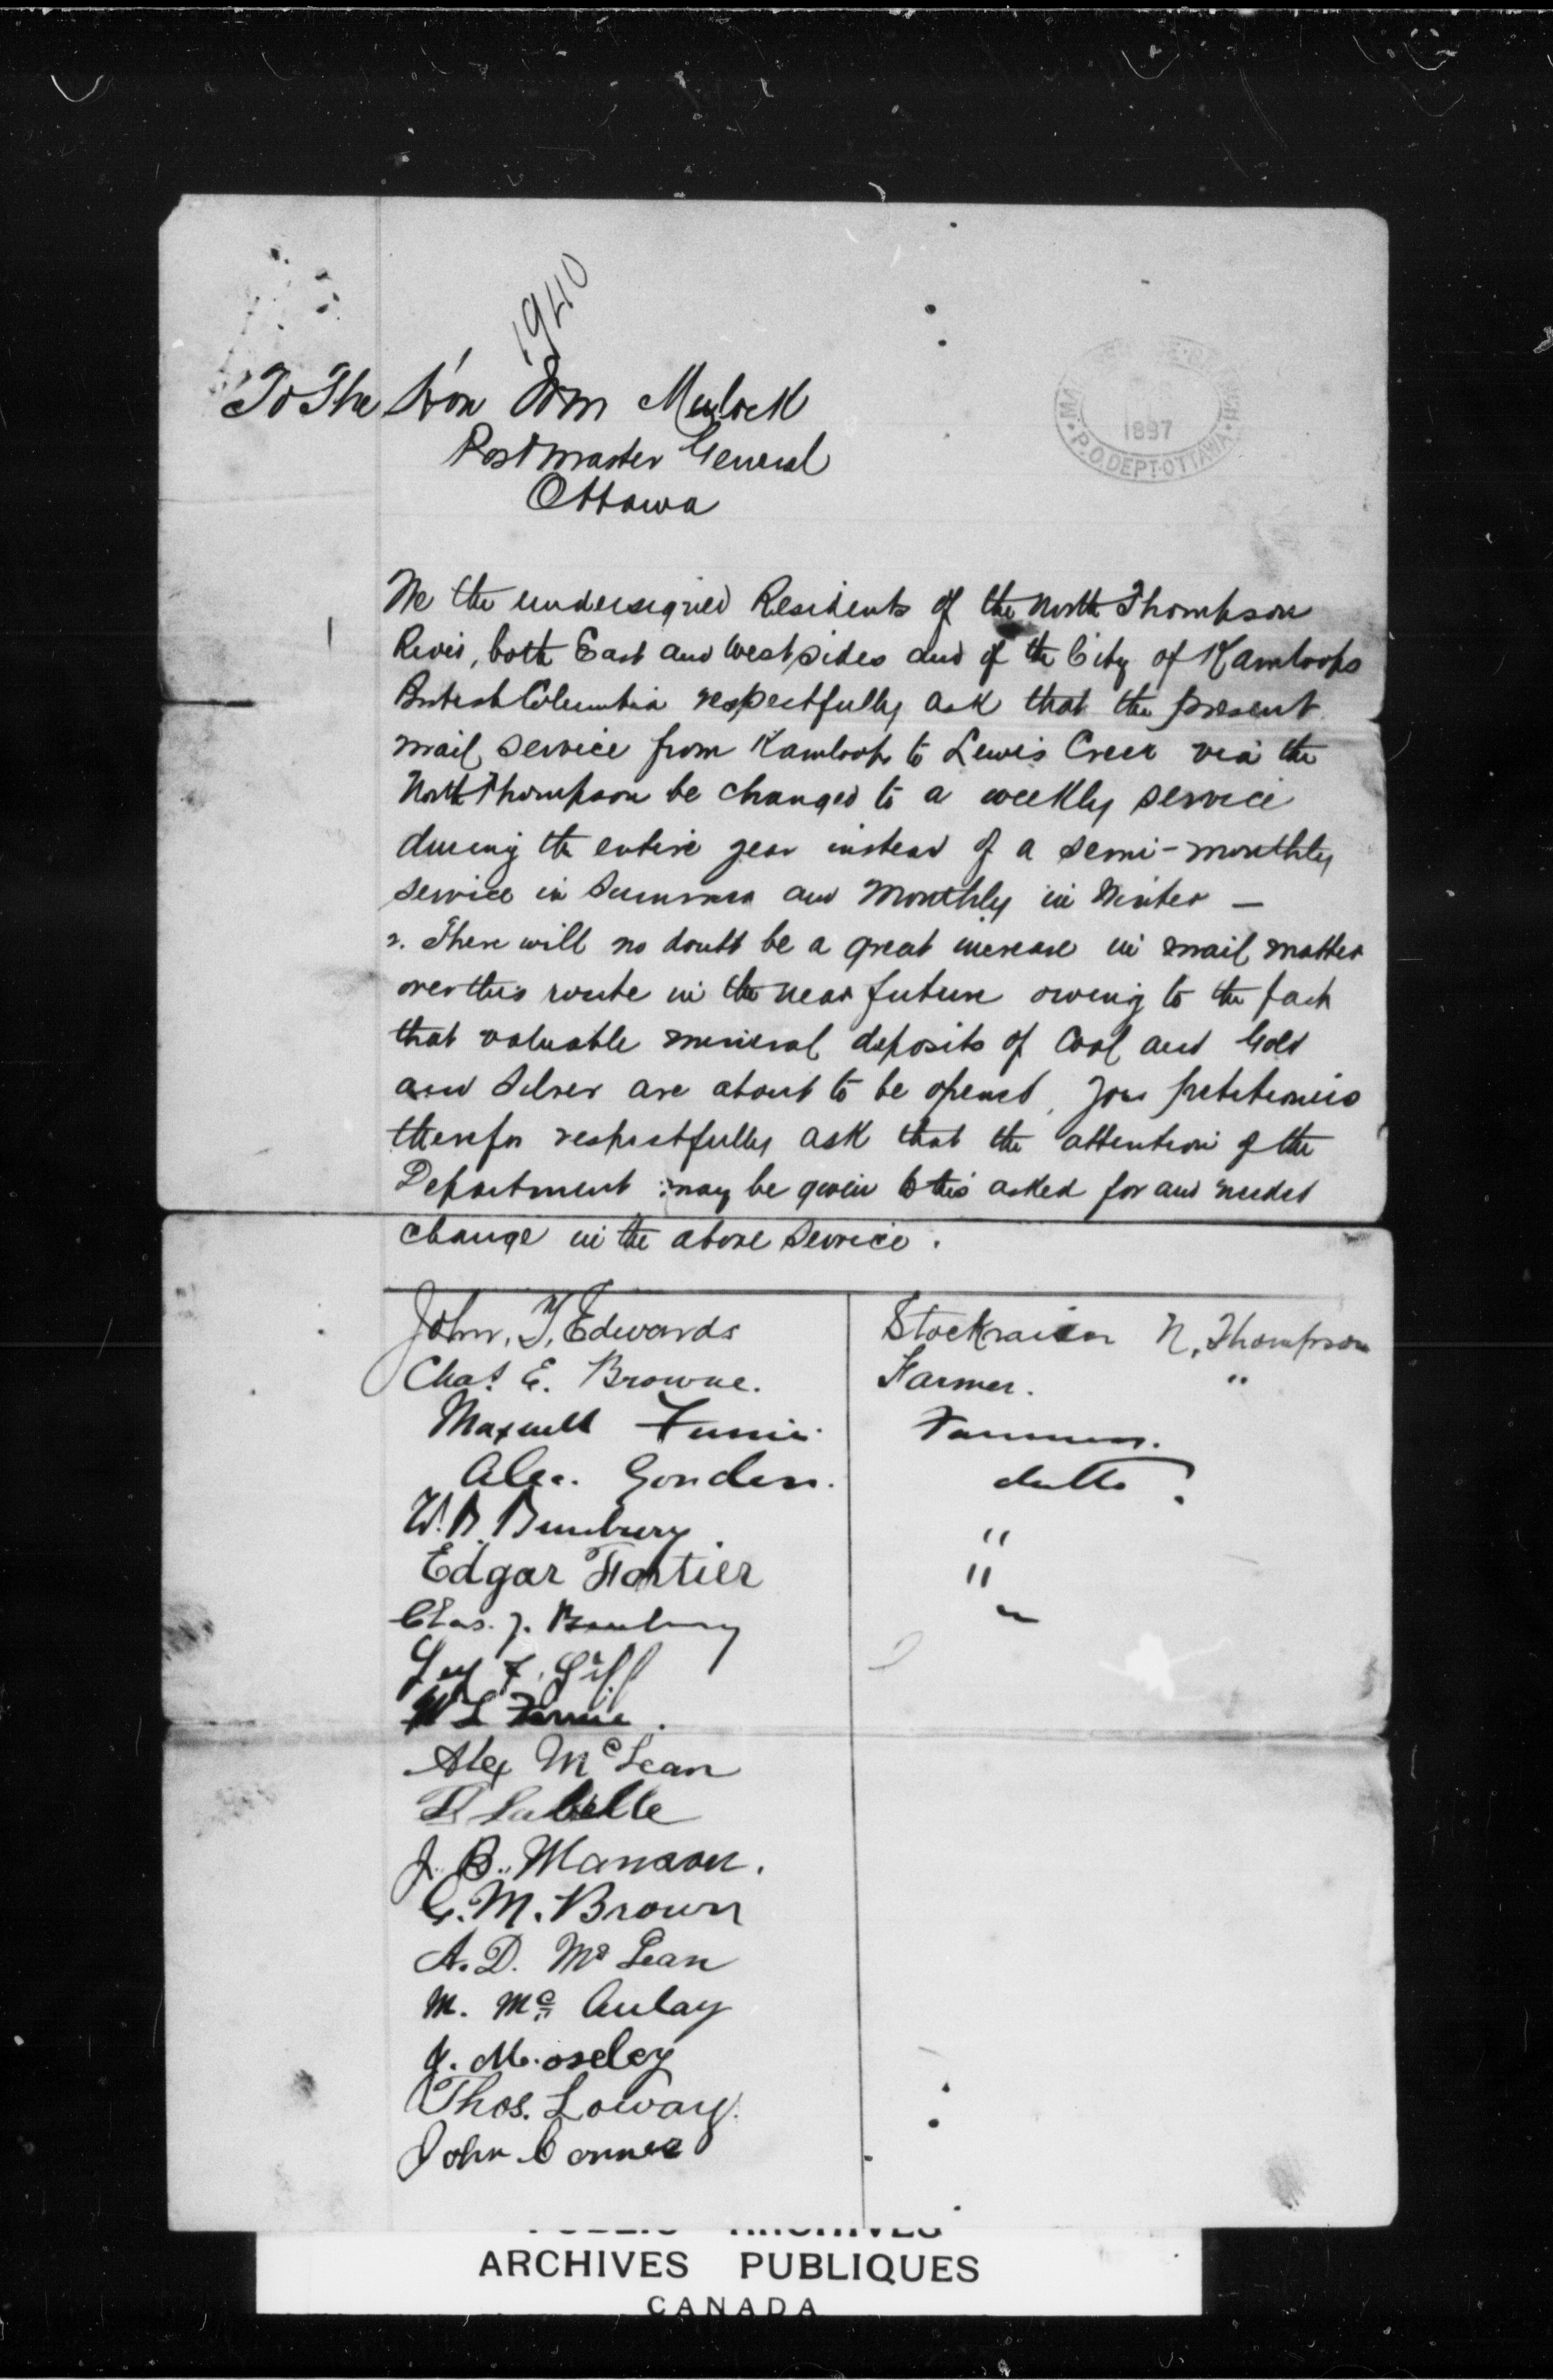 1940
To The Hon Wm Mulock
Postmaster General
Ottawa
1897
P.O. DEPT. OTTAWA
We the undersigned Residents of the North Thompson
River, both East and West sides and of the City of Kamloops
British Columbia respectfully ask that the present
mail service from Kamloops to Lewis Creek via the
North Thompson be changed to a weekly service
during the entire year instead of a semi-monthly
service in Summer and Monthly in Winter —
2. There will no doubt be a great increase in mail matter
over this route in the near future owing to the fact
that valuable mineral deposits of Coal and Gold
and Silver are about to be opened, your petitioners
therefor respectfully ask that the attention of the
Department may be given to this asked for and needed
change in the above service.
John. T. Edwards Stockraiser N. Thompson
Chas. E. Browne. Farmer. "
Maxwell Farmer.
Alex. Gordon. ditto
W. B. Bunbury "
Edgar Fortier "
Chas. J. Bunbury "
W L Fernie.
Alex McLean
Labelle
J. B. Manson.
G. M. Brown
A. D. McLean
M. Mc Aulay
J. Moseley
Thos. Loway.
John Conner
ARCHIVES PUBLIQUES
CANADA